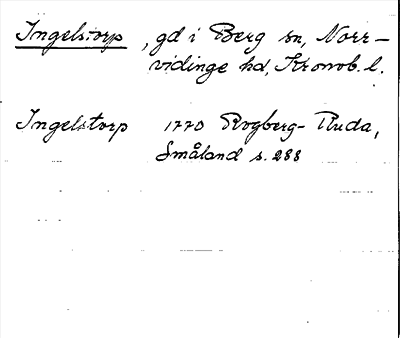 Ingelstorp, gd i Berg sn, Norr-
vidinge hd, Kronob. l.
Ingelstorp 1770 Rogberg-Ruda,
Småland s. 288